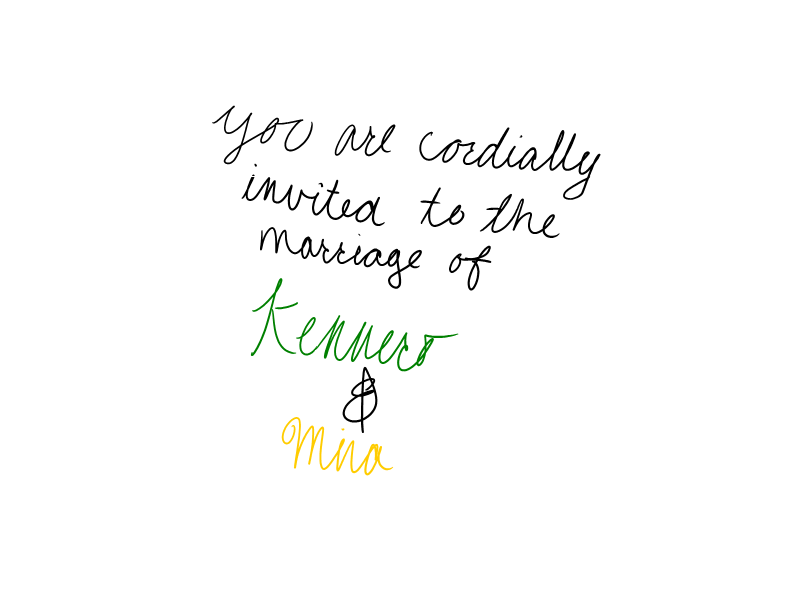 you are cordially
invited to the
marriage of
&